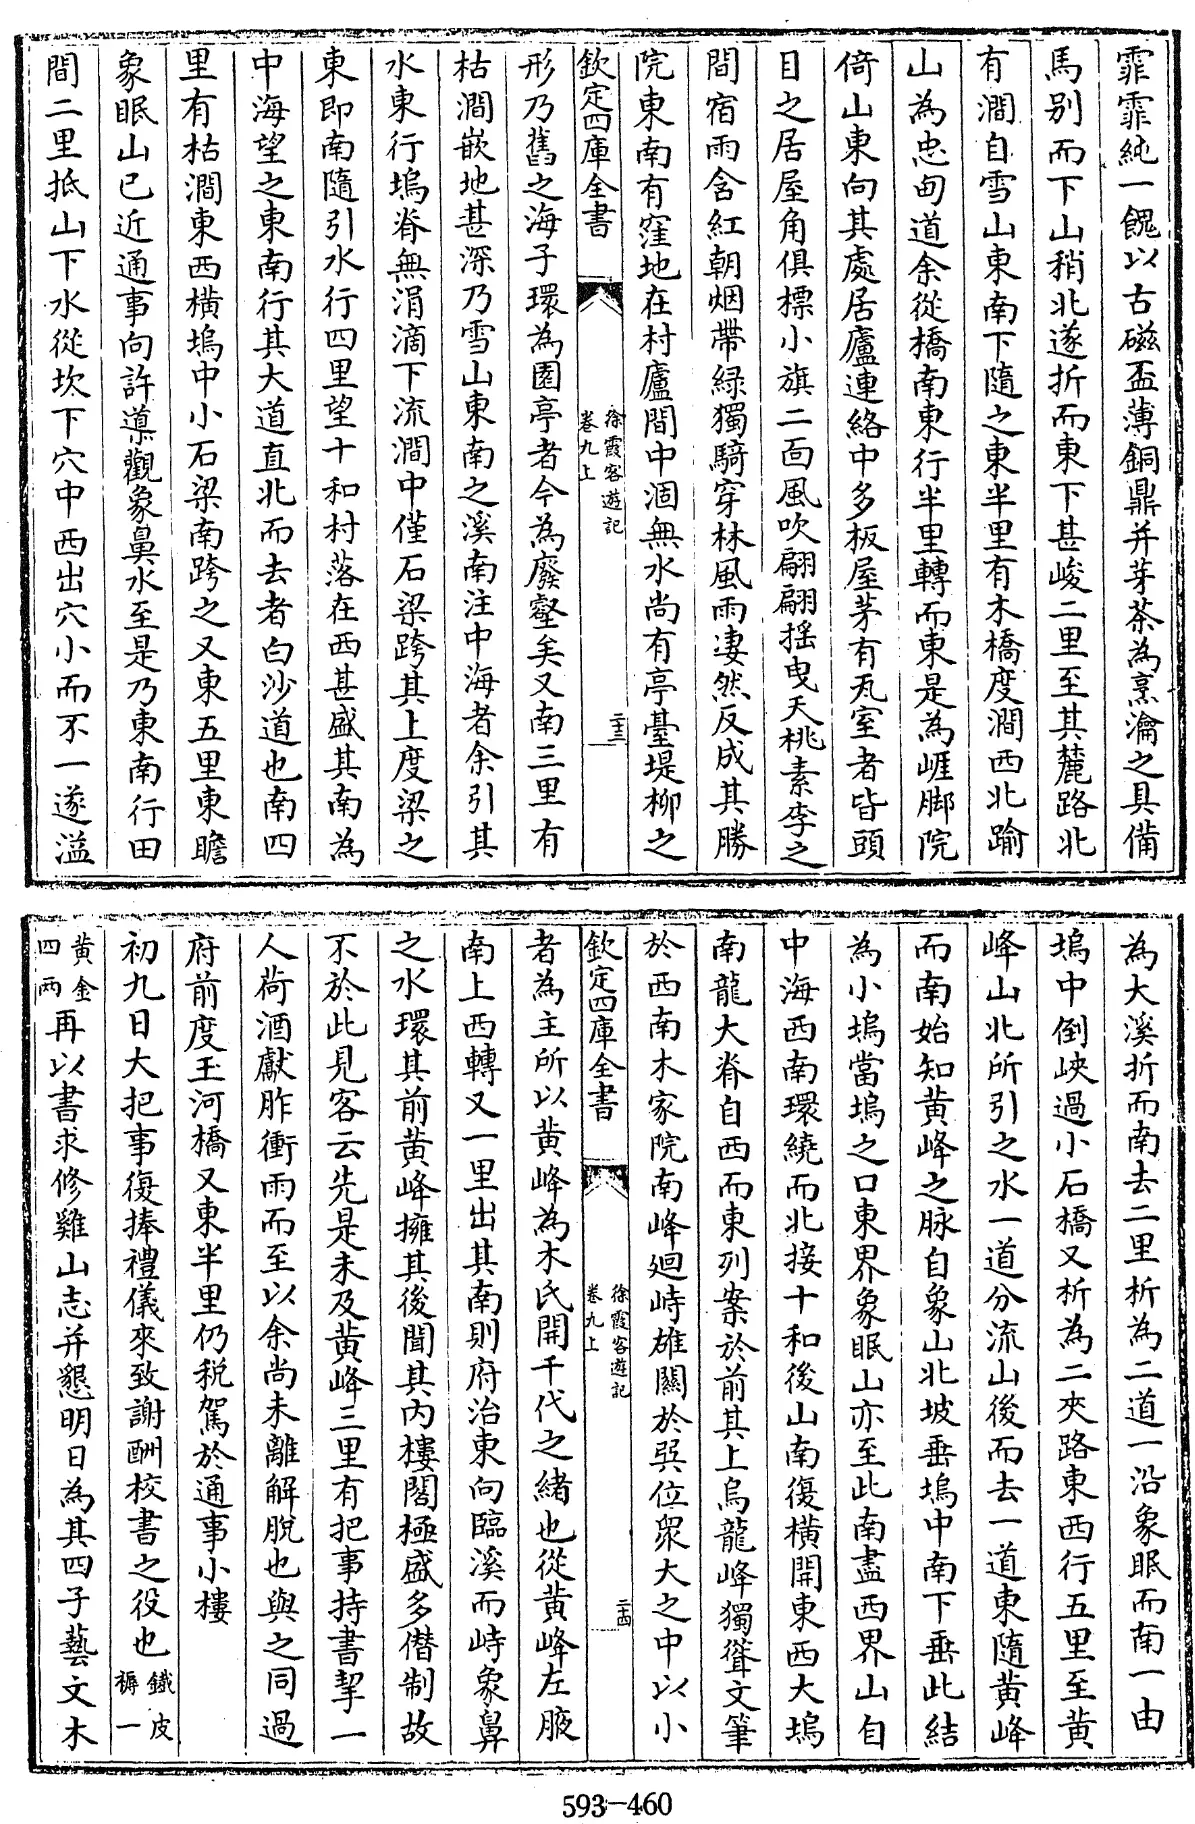 霏霏純一餽以古磁盃薄銅鼎并芽茶為烹瀹之具備
馬别而下山稍北遂折而東下甚峻二里至其麓路北
有澗自雪山東南下隨之東半里有木橋度澗西北踰
山為忠甸道余從橋南東行半里轉而東是為崕脚院
倚山東向其處居廬連絡中多板屋茅有瓦室者皆頭
目之居屋角俱標小旗二面風吹翩翩揺曳夭桃素李之
間宿雨含紅朝烟帶緑獨騎穿林風雨凄然反成其勝
院東南有窪地在村廬間中涸無水尚有亭臺堤柳之
欽定四庫全書
徐霞客遊記
卷九上
二十三
形乃舊之海子環為園亭者今為廢壑矣又南三里有
枯澗嵌地甚深乃雪山東南之溪南注中海者余引其
水東行塢脊無涓滴下流澗中僅石梁跨其上度梁之
東即南隨引水行四里望十和村落在西甚盛其南為
中海望之東南行其大道直北而去者白沙道也南四
里有枯澗東西横塢中小石梁南跨之又東五里東瞻
象眠山已近通事向許導觀象鼻水至是乃東南行田
間二里抵山下水從坎下穴中西出穴小而不一遂溢
為大溪折而南去二里析為二道一沿象眠而南一由
塢中倒峽過小石橋又析為二夾路東西行五里至黄
峰山北所引之水一道分流山後而去一道東隨黄峰
而南始知黄峰之脉自象山北坡垂塢中南下垂此結
為小塢當塢之口東界象眠山亦至此南盡西界山自
中海西南環繞而北接十和後山南復横開東西大塢
南龍大脊自西而東列案於前其上烏龍峰獨聳文筆
於西南木家院南峰廻峙雄關於巽位衆大之中以小
欽定四庫全書
徐霞客遊記
卷九上
二十四
者為主所以黄峰為木氏開千代之緒也從黄峰左腋
南上西轉又一里出其南則府治東向臨溪而峙象鼻
之水環其前黄峰擁其後聞其内樓閣極盛多僭制故
不於此見客云先是未及黄峰三里有把事持書挈一
人荷酒獻胙衝雨而至以余尚未離解脱也與之同過
府前度玉河橋又東半里仍税駕於通事小樓
初九日大把事復捧禮儀來致謝酬校書之役也鐵皮褥一
黄金四兩再以書求修雞山志并懇明日為其四子藝文木
593-460